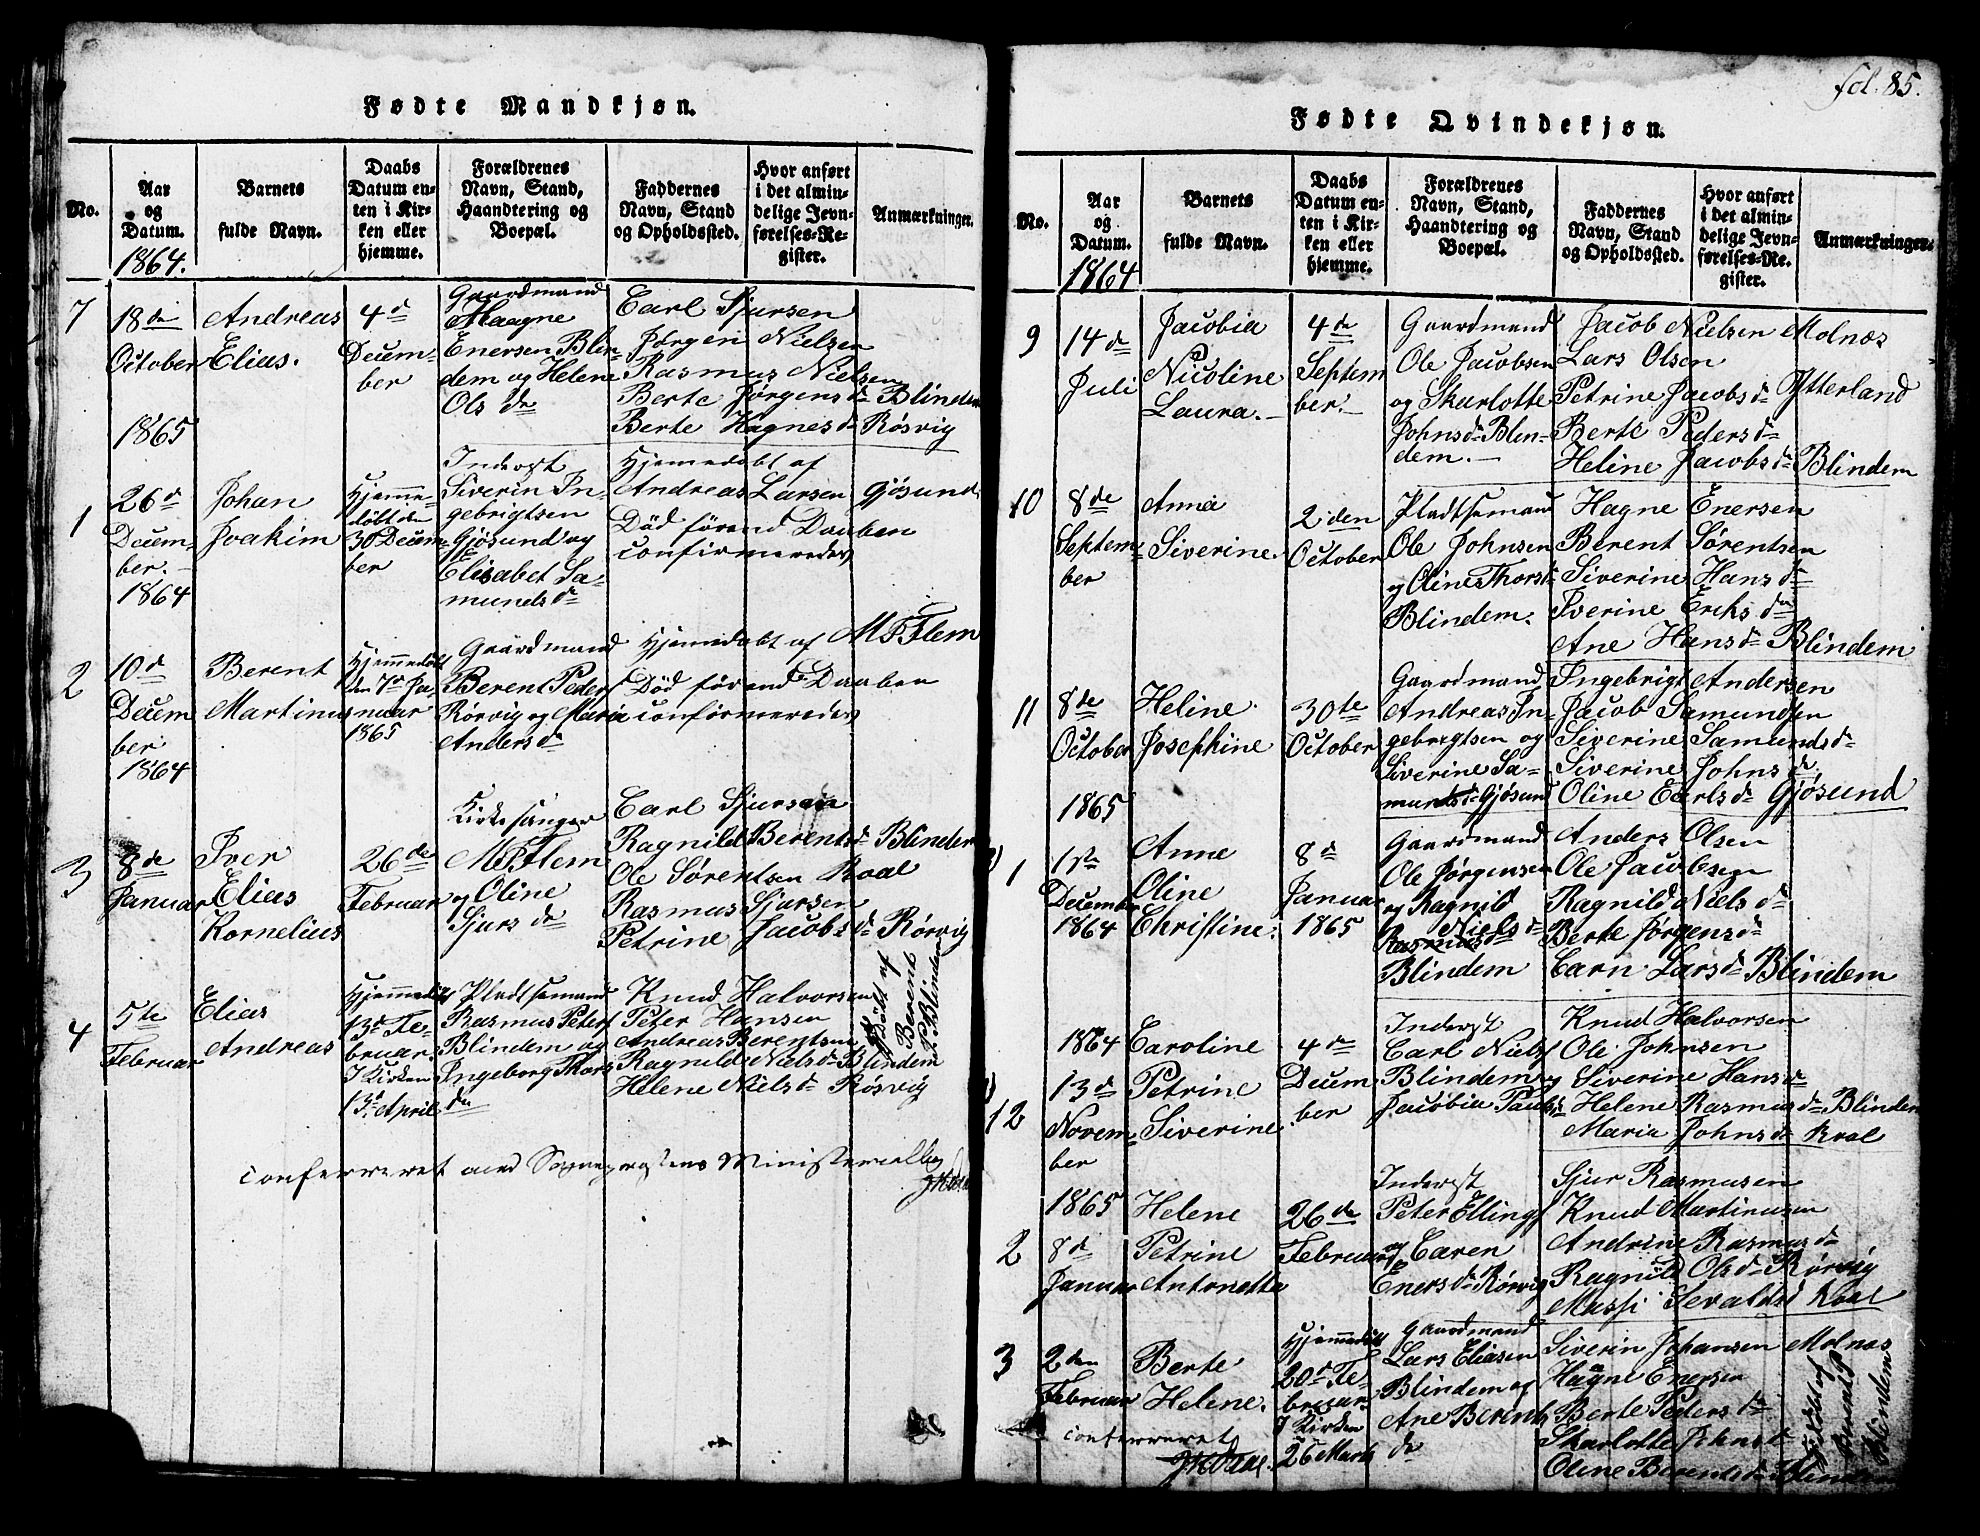 fol. 85.
Fødte Mandkjøn.
No.
Aar
og
Datum.
1864.
Barnets
fulde Navn.
Daabs
Datum en-
ten i Kir-
ken eller
hjemme.
Forældrenes
Navn, Stand,
Haandtering og
Boepæl.
Faddernes
Navn, Stand
og Opholdssted.
Hvor anført
i det almin-
delige Jevn-
førelses-Re-
gister.
Anmærkninger.
7
18de
October
Andreas
Elias.
4de
Decem-
ber
Gaardmand
Maagne
Enersen Blin-
dem og Helene
Ols dr
Carl Sjursen
Jørgen Nielsen
Rasmus Nielsen
Berte Jørgens dr Blindem
Berte Hagnes dr Røsvig
1865
1
26 d
Decem-
ber.
1864
Johan
Joakim
Hjemme-
døbt den
30 Decem-
ber
Inderst
Siverin In-
gebrigtsen
Gjøsund og
Elisabet Sa-
munds dr
Hjemedøbt af
Andreas Larsen Gjøsund
Død førend Daaben
confirmeredes
2
10 d
Decem
ber
1864
Berent
Martinus
Hjemmedøbt
den 7de Ja-
nuar
1865
Gaardmand
Berent Peders
Rørvig og Maria
Anders dr
Hjemedøbt af M P Flem
Død førend Daaben
confirmeredes
3
8de
Januar
Iver
Elias
Kornelius
26de
Februar
Kirkesanger
M P Flem
og Oline
Sjurs dr
Carl Sjursen
Ragnild Berents dr Blindem
Ole Sørentsen Roal
Rasmus Sjursen
Petrine Jacobs dr Rørvig
4
5te
Februar
Elias
Andreas
Hjemmedøbt
13d Fe-
bruar.
I Kirken
13d April
Pladtsemand
Rasmus Peters
Blindem og
Ingeborg Thors
dr
Knud Halvorsen
Peter Hansen
Andreas Berentsen
Ragnild Niels dr Blindem
Helene Niels dr Røsvig
Hjdøbt af
Berent
P Blindem
confereret med Sognepræstens Ministerialbog
Fødte Qvindekjøn.
No.
Aar
og
Datum.
1864
Barnets
fulde Navn.
Daabs
Datum en-
ten i Kir-
ken eller
hjemme.
Forældrenes
Navn, Stand,
Haandtering og
Boepæl.
Faddernes
Navn, Stand
og Opholdssted.
Hvor anført
i det almin-
delige Jevn-
førelses-Re-
gister.
Anmærkninger.
9
14de
Juli
Jacobia
Nicoline
Laura.
4de
Septem
ber.
Gaardmand
Ole Jacobsen
og Skarlotte
Johns dr Blin-
dem.
Jacob Nielsen Molnæs
Lars Olsen
Petrine Jacobs dr Ytterland
Berte Peders dr
Heline Jacobs dr Blindem
10
8de
Septem-
ber
Anna
Siverine.
2den
October
Pladtsemand
Ole Johnsen
og Oline Thors dr
Blindem.
Hagne Enersen
Berent Sørentsen
Siverine Hans dr
Iverine Eriks dr
Ane Hans dr Blindem
11
8de
October
Heline
Josephine
30te
October
Gaardmand
Andreas In-
gebrigtsen og
Siverine Sa-
munds dr Gjøsund
Ingebrigt Andersen
Jacob Samundsen
Siverine Samunds dr
Siverine Johns dr
Oline Carls dr Gjøsund
1865
1
1ste
December
1864
Anne
Oline
Christine.
8d
Januar
1865
Gaardmand
Ole Jørgensen
og Ragnild
Niels dr
Rasmus dr
Blindem
Anders Olsen
Ole Jacobsen
Ragnild Niels dr
Berte Jørgens dr
Carn Lars dr Blindem
1864
12
13d
Novem-
ber
Caroline
Petrine
Siverine
4de
Decem
ber
Inderst
Carl Niels
Blindem og
Jacobia Pauls dr
Knud Halvorsen
Ole Johnsen
Siverine Hans dr
Helene Rasmus dr Blindem
Maria Johns dr Roal
1865
2
8d
Januar
Helene
Petrine
Antonette
26de
Februar
Inderst
Peter Ellings
og Caren
Eners dr Rørvig
Sjur Rasmusen
Knud Martinusen
Andrine Rasmus dr
Ragnild Ols dr Rørvig
Massi Sevalds dr Roal
3
2den
Februar
Berte
Helene.
Hjemmedøbt
20d Fe-
bruar.
I Kirken
26 Marts
Gaardmand
Lars Eliasen
Blindem og
Ane Berents
dr
Siverin Johansen Molnæs
Hagne Enersen
Berte Peders dr
Skarlotte Johns dr
Oline Berents dr Blindem
Hjdøbt af
Berent P
Blindem
confereret